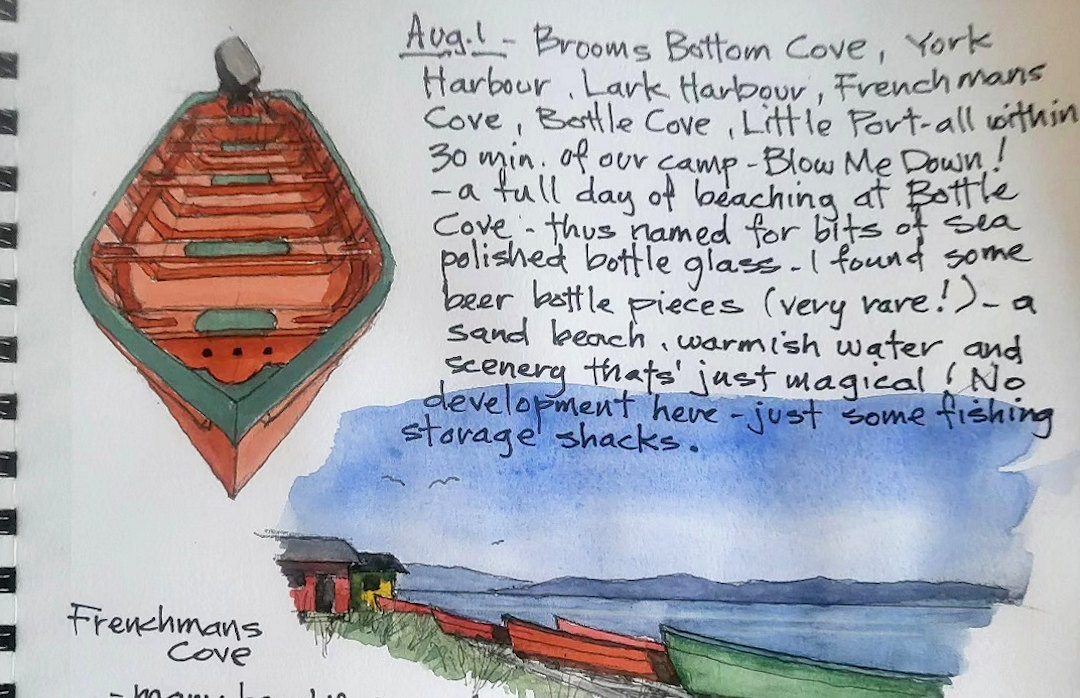 Aug. 1 - Brooms Bottom Cove, York
Harbour, Lark Harbour, Frenchmans
Cove, Bottle Cove, Little Port - all within
30 min. of our camp - Blow Me Down!
- a full day of beaching at Bottle
Cove - thus named for bits of sea
polished bottle glass - I found some
beer bottle pieces (very rare!) - a
sand beach, warmish water and
scenery thats' just magical! No
development here - just some fishing
storage shacks.
Frenchmans
Cove